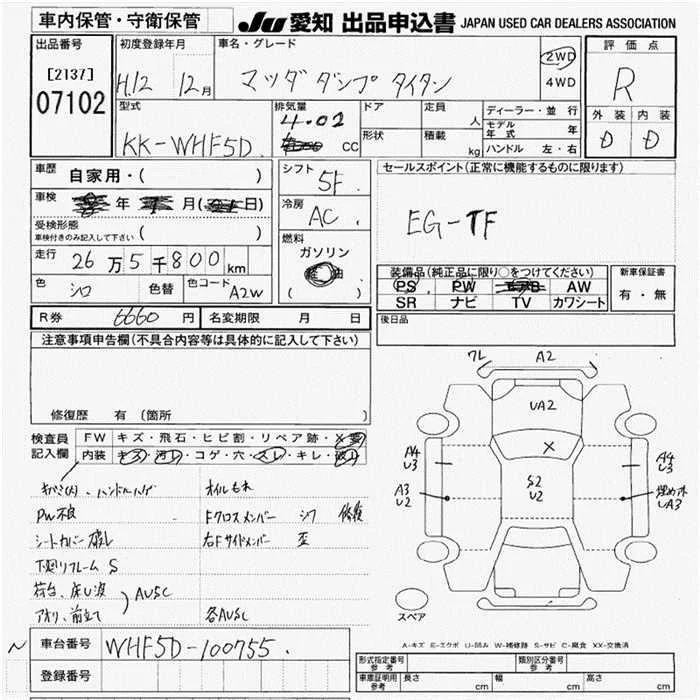 車内保管・守衛保管
JU 愛知 出品申込書 JAPAN USED CAR DEALERS ASSOCIATION
出品番号
[2137]
07102
初度登録年月
H.12 12月
車名・グレード
マツダ ダンプ タイタン
2WD
4WD
評価点
R
外装 内装
D D
型式
KK-WHF5D
排気量
4.02
cc
ドア
形状
定員 人
積載 kg
ディーラー・並行
モデル年式 年
ハンドル 左・右
車歴 自家用・( )
車検 年 月( 日)
受検形態
車検付きのみ記入して下さい ( )
走行 26万5千800km
色 シロ 色替 色コード A2W
シフト 5F
冷房 AC
燃料
ガソリン
( )
セールスポイント(正常に機能するものに限ります)
EG-TF
装備品(純正品に限り○をつけてください)
PS PW AW
SR ナビ TV カワシート
新車保証書
有・無
後日品
R券 6660円 名変期限 月 日
注意事項申告欄(不具合内容等は具体的に記入して下さい)
修復歴 有(箇所 )
検査員
記入欄
FW キズ・飛石・ヒビ割・リペア跡・X
内装 キズ・汚レ・コゲ・穴・スレ・キレ・破レ
ハンドルハゲ オイルモレ
PW不良 Fクロスメンバー
シートカバー 破レ 右Fサイドメンバー 歪
下廻りフレーム S
荷台、床U波
アオリ、前立て
AUSC
各AUSC
ワレ A2
UA2
X
A4
U3
A3
U2
S2
U2
A4
U3
UA3
スペア
A-キズ E-エクボ U-凹み W-補修跡 S-サビ C-腐食 XX-交換済
N 車台番号 WHF5D-100755
登録番号
形式指定番号
参考
類別区分番号
参考
車庫証明用
参考
長さ cm 幅 cm 高さ cm